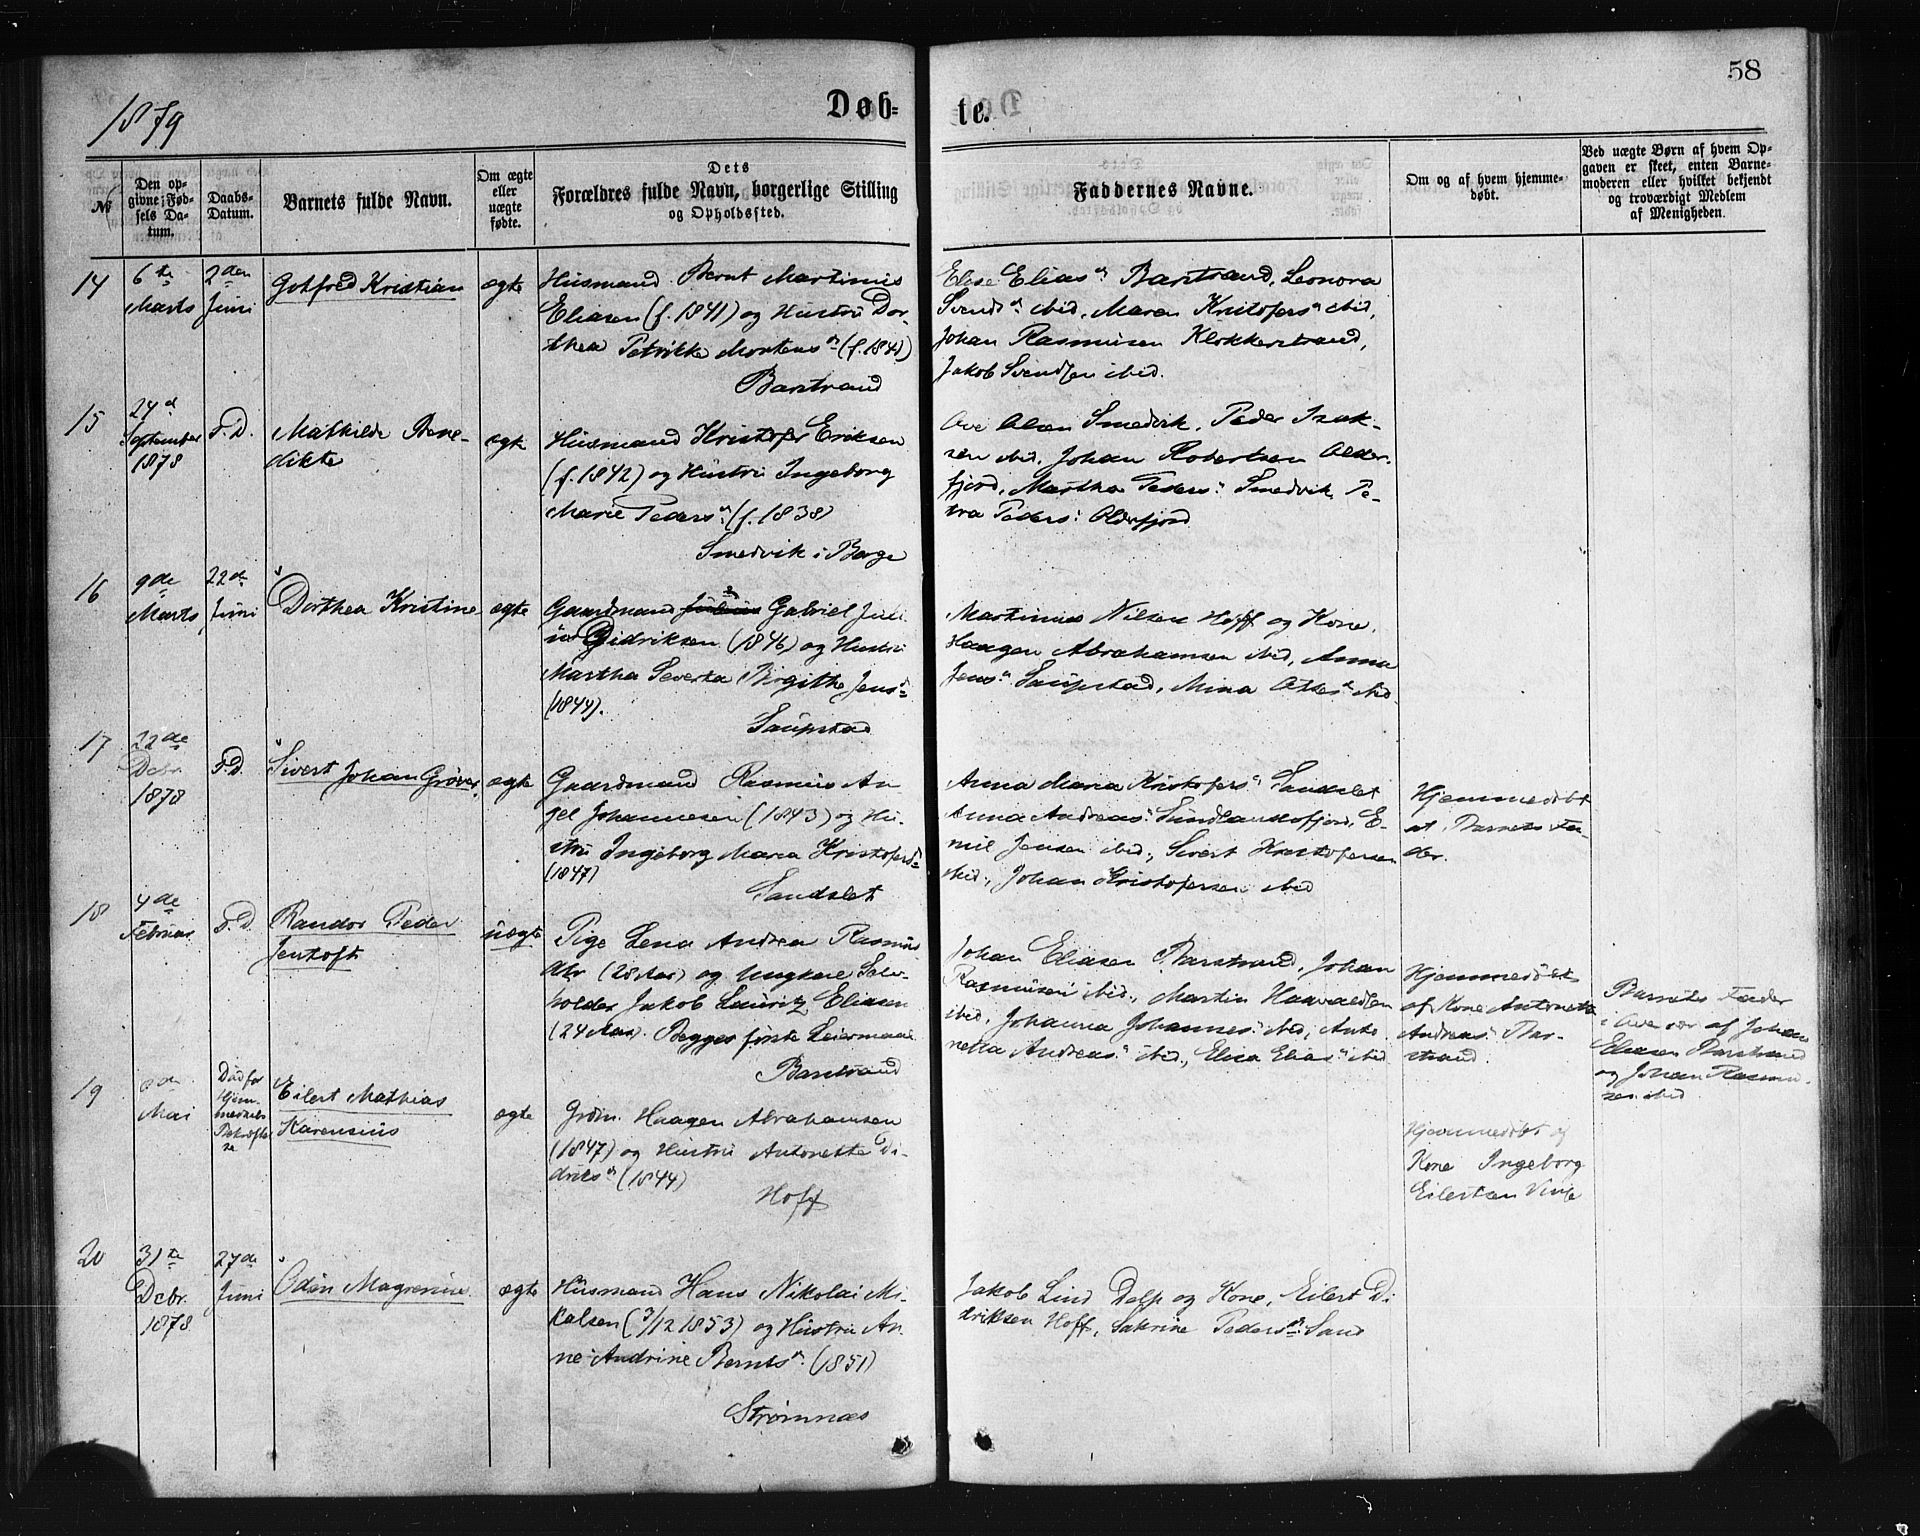 58
1879
Døb-
te.
№
Den op-
givne Fød-
sels Da-
tum.
Daabs-
Datum.
Barnets fulde Navn.
Om ægte
eller
uægte
fødte.
Dets
Forældres fulde Navn, borgerlige Stilling
og Opholdssted.
Faddernes Navne.
Om og af hvem hjemme-
døbt.
Ved uægte Børn af hvem Op-
gaven er skeet, enten Barne-
moderen eller hvilket bekjendt
og troværdigt Medlem
af Menigheden.
14
6te
Marts
2den
Juni
Gotfred Kristian
ægte
Husmand Bernt Martinus
Eliasen (f. 1841) og Hustru Dor-
thea Petrikke Mortensd (f. 1841)
Barstrand
Elise Eliasd Barstrand, Leonora
Svendsd ibid, Maren Kristofersd ibid,
Johan Rasmusen Klokkerstrand,
Jakob Svendsen ibid.
15
24d
September
1878
S. D.
Mathilde Bene-
dikte
ægte
Husmand Kristofer Eriksen
(f. 1842) og Hustru Ingeborg
Marie Pedersd (f. 1838)
Smedvik i Borge
Ove Olsen Smedvik, Peder Isak-
sen ibid, Johan Robertsen Older-
fjord, Martha Pedersd Smedvik, Pe-
tra Pedersd Olderfjord
16
9de
Marts
22de
Juni
Dorthea Kristine
ægte
Gaardmand Gabriel Juli-
us Didriksen (1846) og Hustru
Martha Severka Birgithe Jensd
(1844).
Saupstad
Martinus Nilsen Hoff og Kone,
Haagen Abrahamsen ibid, Anna
Jensd Saupstad, Mina Olsed ibid
17
22de
Debr.
1878
S. D.
Sivert Johan Grøver
ægte
Gaardmand Rasmus An-
gel Johannesen (1843) og Hu-
stru Ingeborg Maria Kristofersd
(1847)
Sandslet
Anna Maria Kristofersd Sandslet
Anna Andreasd Sundlandsfjord, E-
mil Jensen ibid., Sivert Kristofersen
ibid., Johan Kristofersen ibid
Hjemmedøbt
af Barnets Fa-
der.
18
4de
Februar
S. D.
Randor Peder
Jentoft
uægte
Pige Lena Andrea Rasmus
dtr (28 Aar) og Ungkarl Selv-
holder Jakob Lauritz Eliasen
(24 Aar). Begges første Leiermaal
Barstrand
Johan Eliasen Barstrand, Johan
Rasmusen ibid., Martin Haavaldsen
ibid., Johanna Johannesd ibid, Anto
netta Andreasd ibid., Elisa Eliasd ibid
Hjemmedøbt
af Kone Antonetta
Andreasd Bar-
strand.
Barnets Fader
Johan
Eliasen Barstrand
og Johan Rasmu-
sen ibid
19
Mai
Død før
Hjem-
medøbs
Bekræftel-
se
Eilert Mathias
Karensius
ægte
Grdm. Haagen Abrahamsen
(1847) og Hustru Antonette Di-
driksd (1844)
Hoff
Hjemmedøbt af
Kone Ingeborg
Eilertsen
20
31te
Debr.
1878
27de
Juni
Odin Magrenius
ægte
Husmand Hans Nikolai Mi-
kalsen (7/12 1853) og Hustru An-
ne Andrine Berntsd (1851)
Strømnæs
Jakob Lind Delp og Kone, Eilert Di
driksen Hoff, Sakrine Pedersd Sand